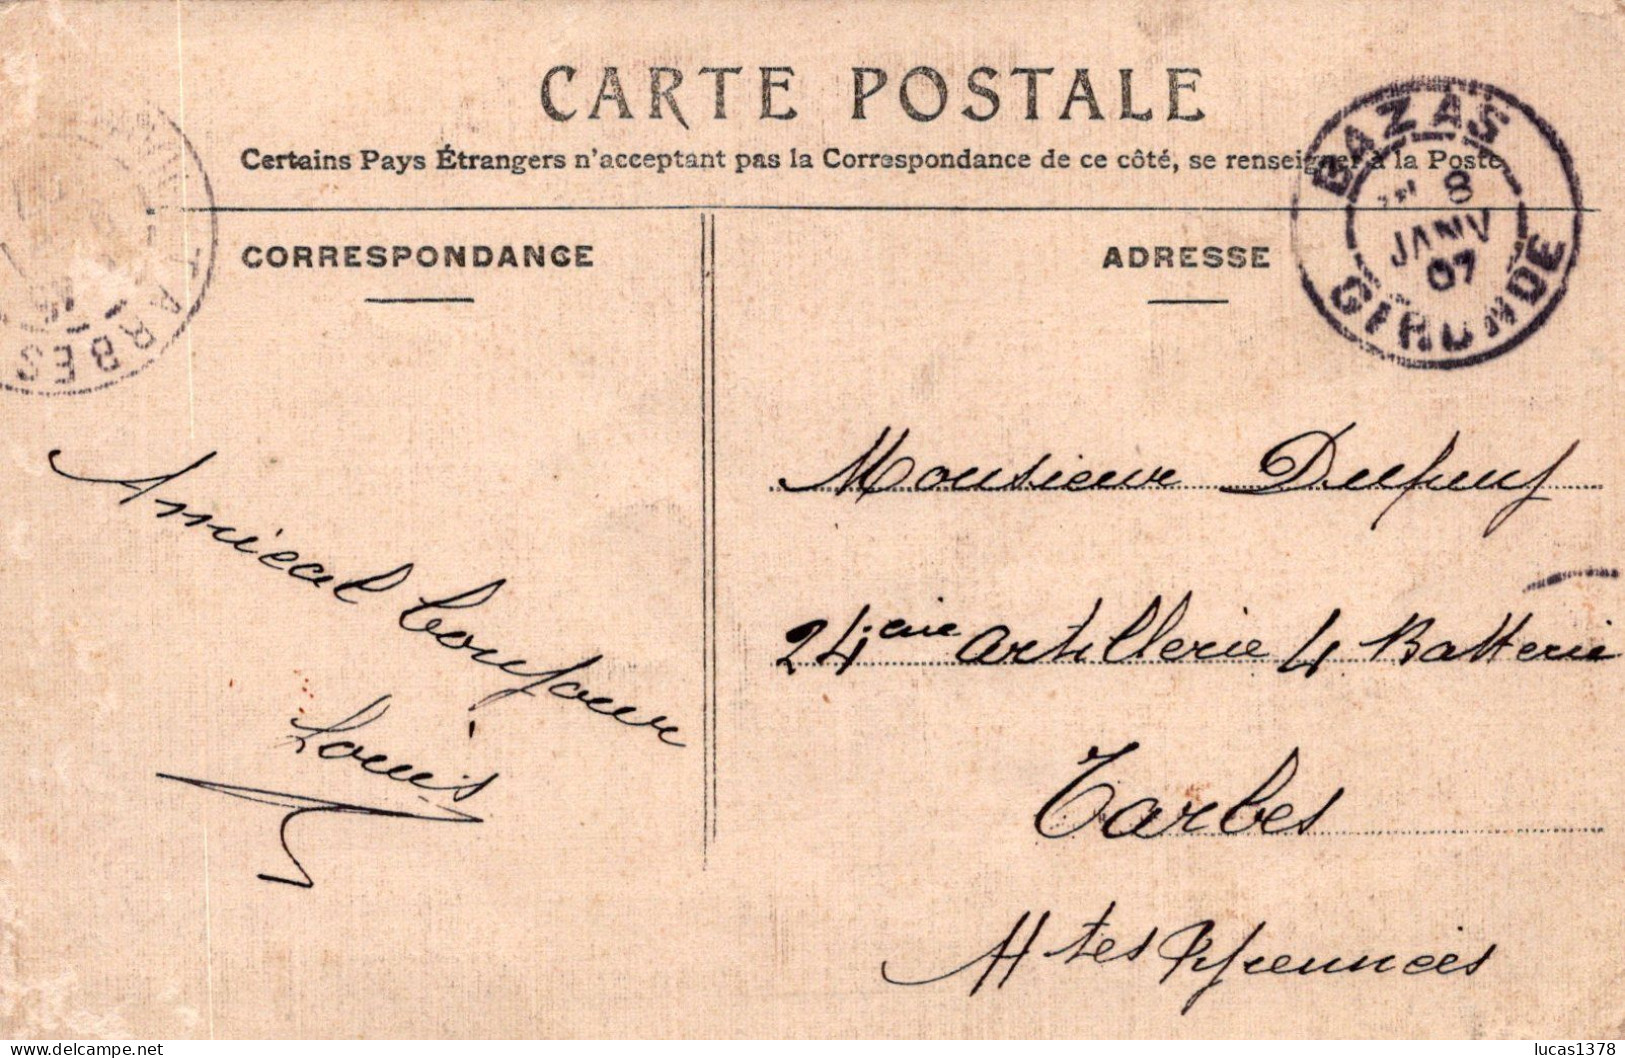 CARTE POSTALE
Certains Pays Étrangers n'acceptant pas la Correspondance de ce côté, se renseigner à la Poste
CORRESPONDANCE
ADRESSE
BAZAS
8
JANV
07
GIRONDE
TARBES
Amical bonjour
Louis
Monsieur
24eme artillerie 4 Batterie
Tarbes
Htes Pyrennées
lucas1378